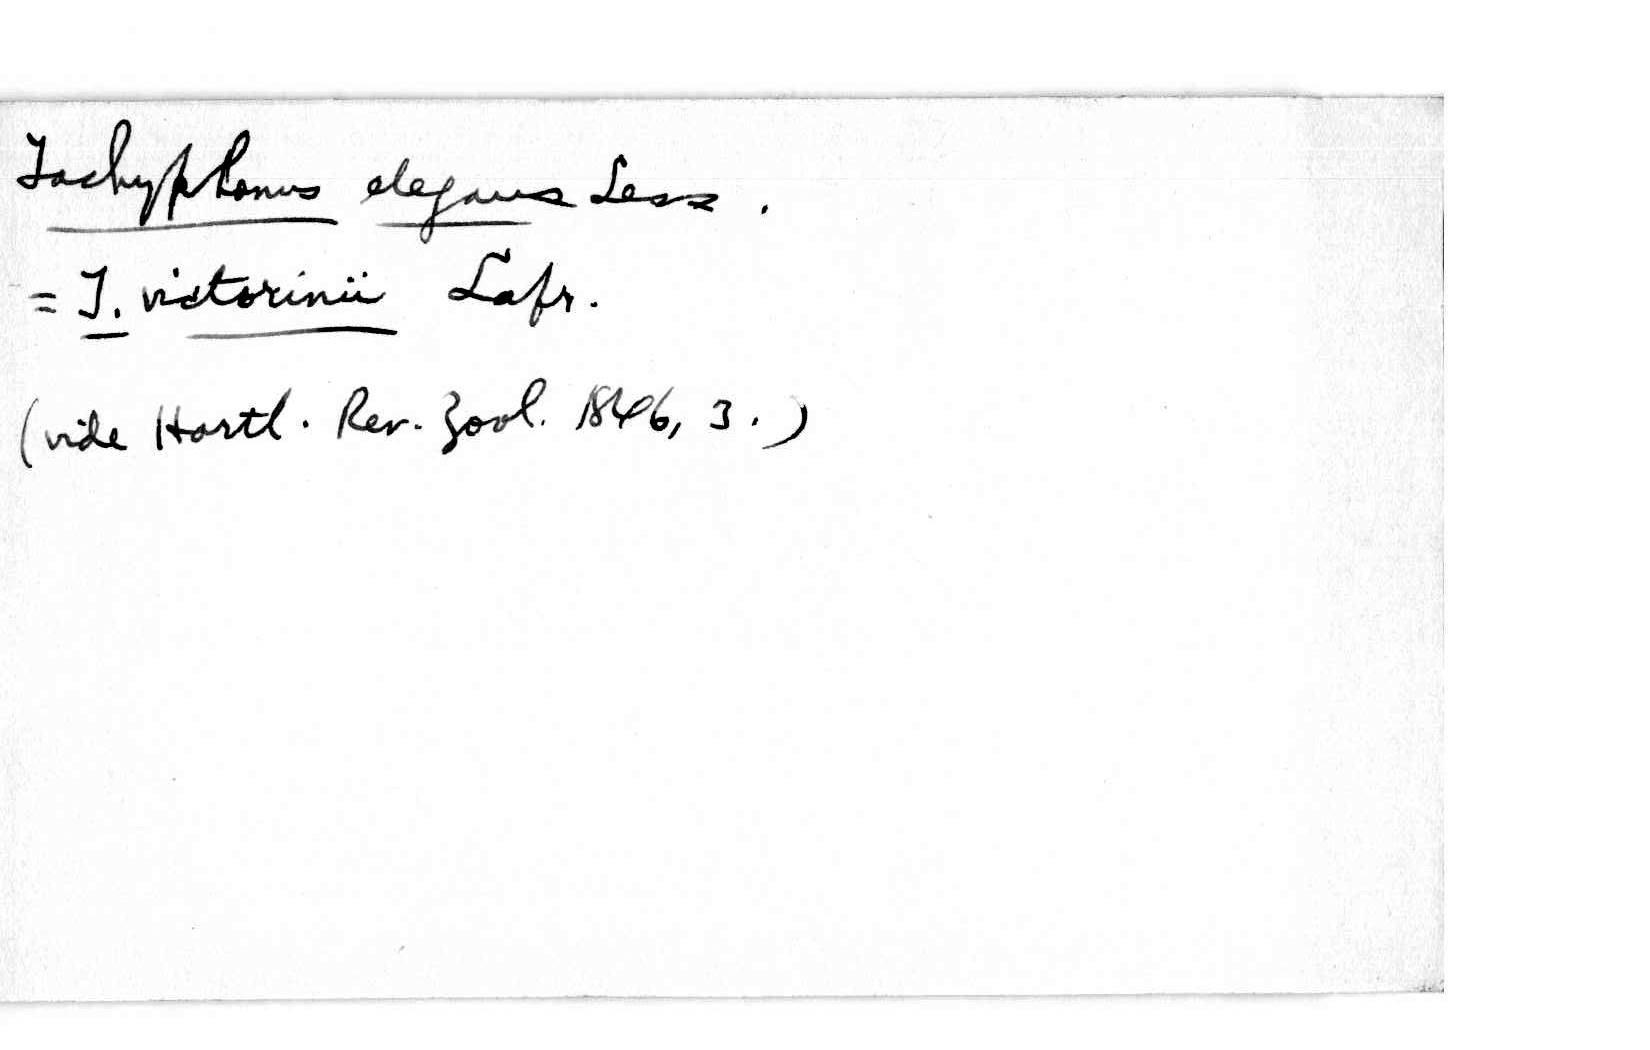 Tachyphonus elegans Less.
= T. victorinii Lafr.
(vide Hartl. Rev. Zool. 1846, 3.)